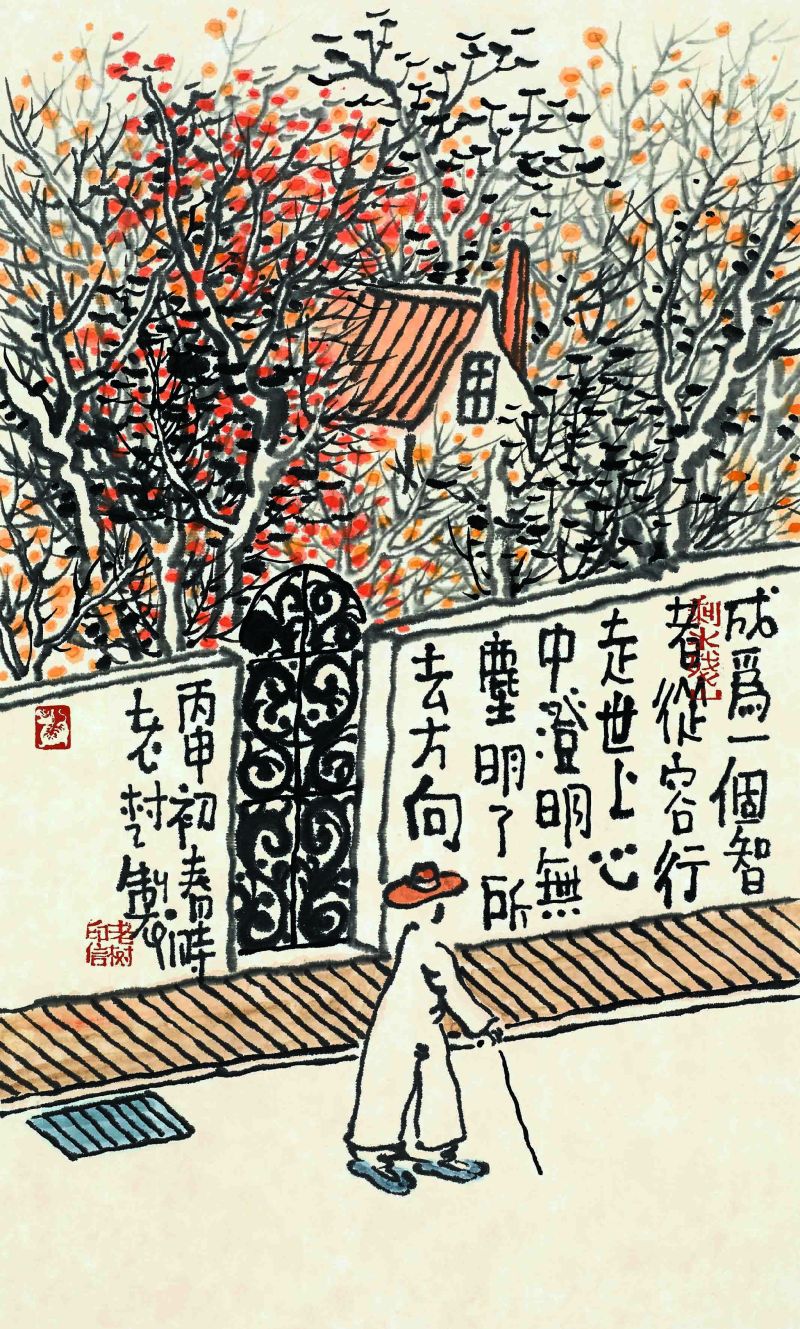 成爲一個智
者從容行
走世上心
中澄明無
塵明了所
去方向
丙申初春時
老樹製
老树
印信